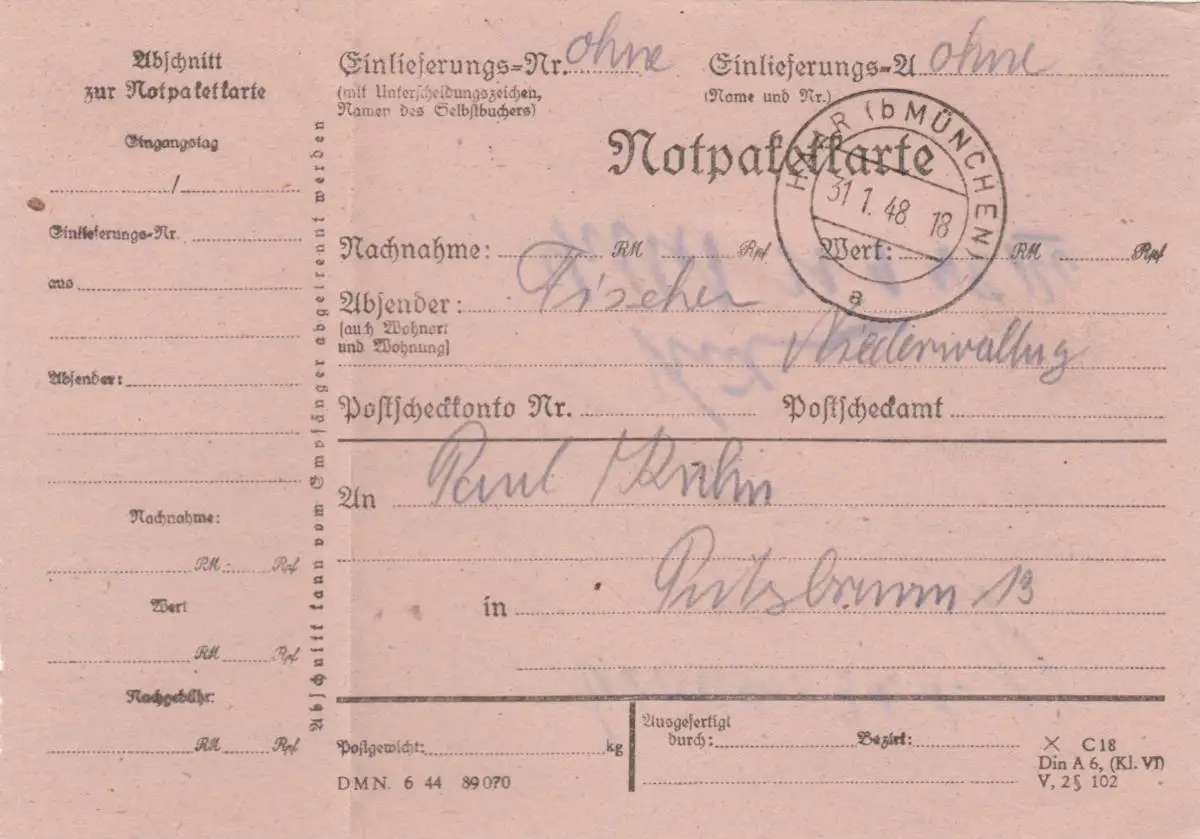 Abschnitt
zur Notpaketkarte
Eingangstag
/
Einlieferungs-Nr.
aus
Absender:
Nachnahme:
RM Rpf
Wert
RM Rpf
Nachgebühr:
RM Rpf
Abschnitt kann vom Empfänger abgetrennt werden
Einlieferungs-Nr. ohne Einlieferungs-A ohne
(mit Unterscheidungszeichen, (Name und Nr.)
Namen des Selbstbuchers)
Notpaketkarte
HAAR (b MÜNCHEN)
31 1. 48 18
a
Nachnahme: RM Rpf Wert: RM Rpf
Absender: Fischer
(auch Wohnort
und Wohnung) Niederwalling
Postscheckkonto Nr. Postscheckamt
An Paul
in Putzbrunn 13
Postgewicht: kg
Ausgefertigt
durch: Bezirk:
DMN. 6 44 89070
C 18
Din A 6, (Kl. VI)
V, 2 § 102